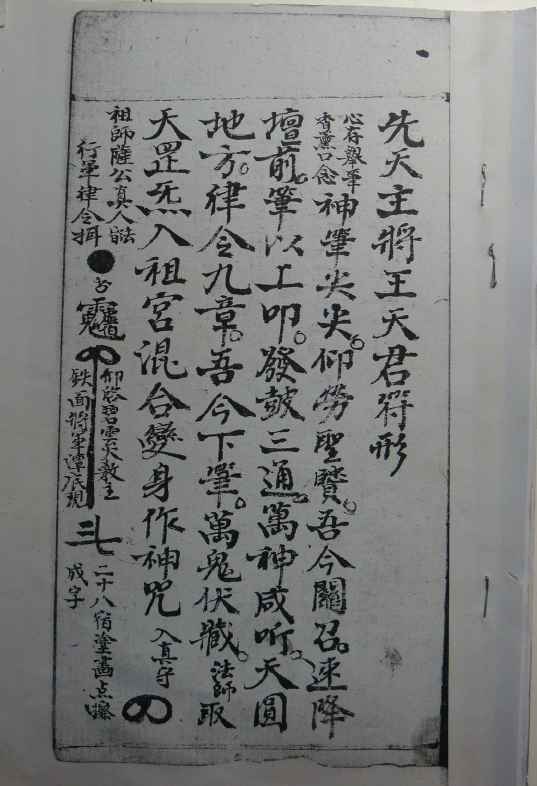 先天主將王天君符形
心存舉筆
香薰口念
神筆尖尖。仰勞聖賢。吾今關召。速降
壇前。筆以上叩。發鼓三通。萬神咸听。天圓
地方。律令九章。吾今下筆。萬鬼伏藏。法師取
天罡炁入祖宮混合變身作神咒 入真守
祖師薩公真人
行筆律令
仰啓碧雲天教主
鉄面將軍
二十八宿塗畵点
成字